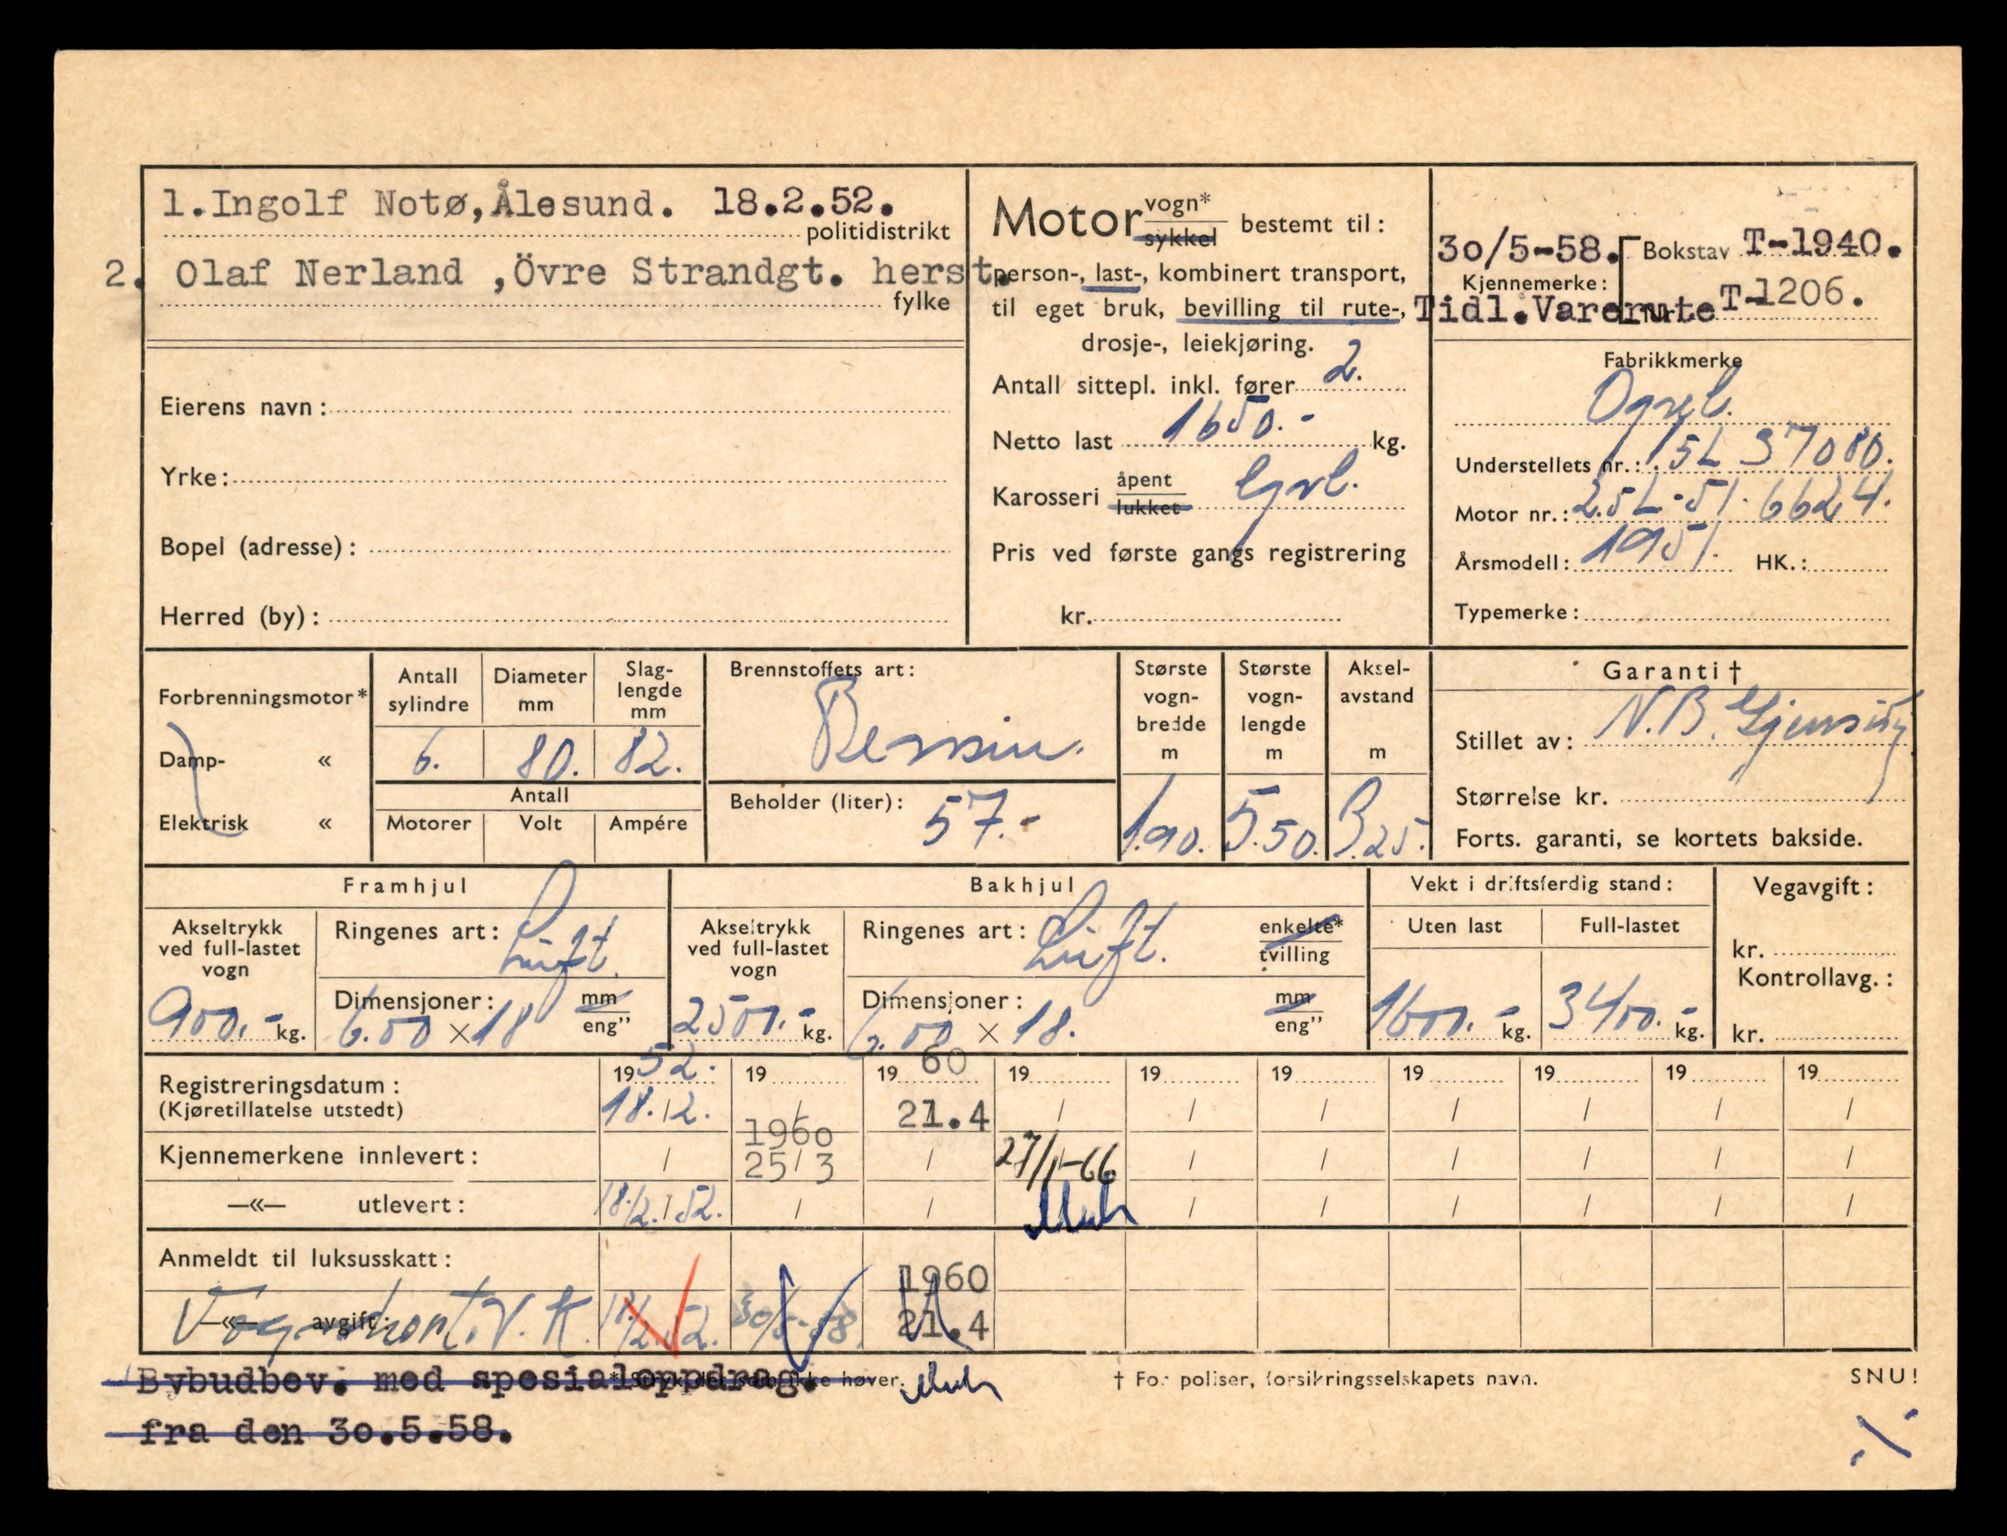 1. Ingolf Notø, Ålesund. 18.2.52.
politidistrikt
2. Olaf Nerland ,Övre Strandgt. herst.
fylke
Eierens navn:
Yrke:
Bopel (adresse):
Herred (by):
Motor vogn*
sykkel bestemt til:
person-, last-, kombinert transport,
til eget bruk, bevilling til rute-,
drosje-, leiekjøring.
Antall sittepl. inkl. fører 2.
Netto last 1650.- kg.
Karosseri åpent
lukket
Pris ved første gangs registrering
kr.
30/5-58. Bokstav T-1940.
Kjennemerke:
Tidl.Varerute T-1206.
Fabrikkmerke
Opel.
Understellets nr.: 1.5L 37080.
Motor nr.: 2.5L-51. 6624.
Årsmodell: 1951. HK.:
Typemerke:
Forbrenningsmotor*
Damp- «
Elektrisk «
Antall sylindre
Diameter mm
Slag-
lengde
mm
6. 80. 82.
Antall
Motorer Volt Ampére
Brennstoffets art:
Bensin.
Beholder (liter): 57.-
Største
vogn-
bredde
m
1.90.
Største
vogn-
lengde
m
5.50.
Aksel-
avstand
m
3.25.
Garanti †
Stillet av: N.B. Gjensidig
Størrelse kr.
Forts. garanti, se kortets bakside.
Framhjul
Akseltrykk
ved full-lastet
vogn
900.- kg.
Ringenes art: Luft.
Dimensjoner: mm
6.00 × 18 eng"
Bakhjul
Akseltrykk
ved full-lastet
vogn
2500.- kg.
Ringenes art: Luft. enkelte*
tvilling
Dimensjoner: mm
6.00 × 18. eng"
Vekt i driftsferdig stand:
Uten last Full-lastet
1600.- kg. 3400.- kg.
Vegavgift:
kr.
Kontrollavg.:
kr.
Registreringsdatum: 1952. 19 1960 19 19 19 19 19 19 19
(Kjøretillatelse utstedt) 18./2. / 21.4 / / / / / / /
Kjennemerkene innlevert: / 1960 25/3 / 27/1-66 / / / / / /
—«— utlevert: 18/2.52. / / / / / / / /
Anmeldt til luksusskatt:
—«— avgift: V.K. 18/2.52. 30/5-58. 1960 21.4
Bybudbev. med spesialoppdrag.
* Stryk det som ikke høver.
† For poliser, forsikringsselskapets navn.
SNU!
fra den 30.5.58.